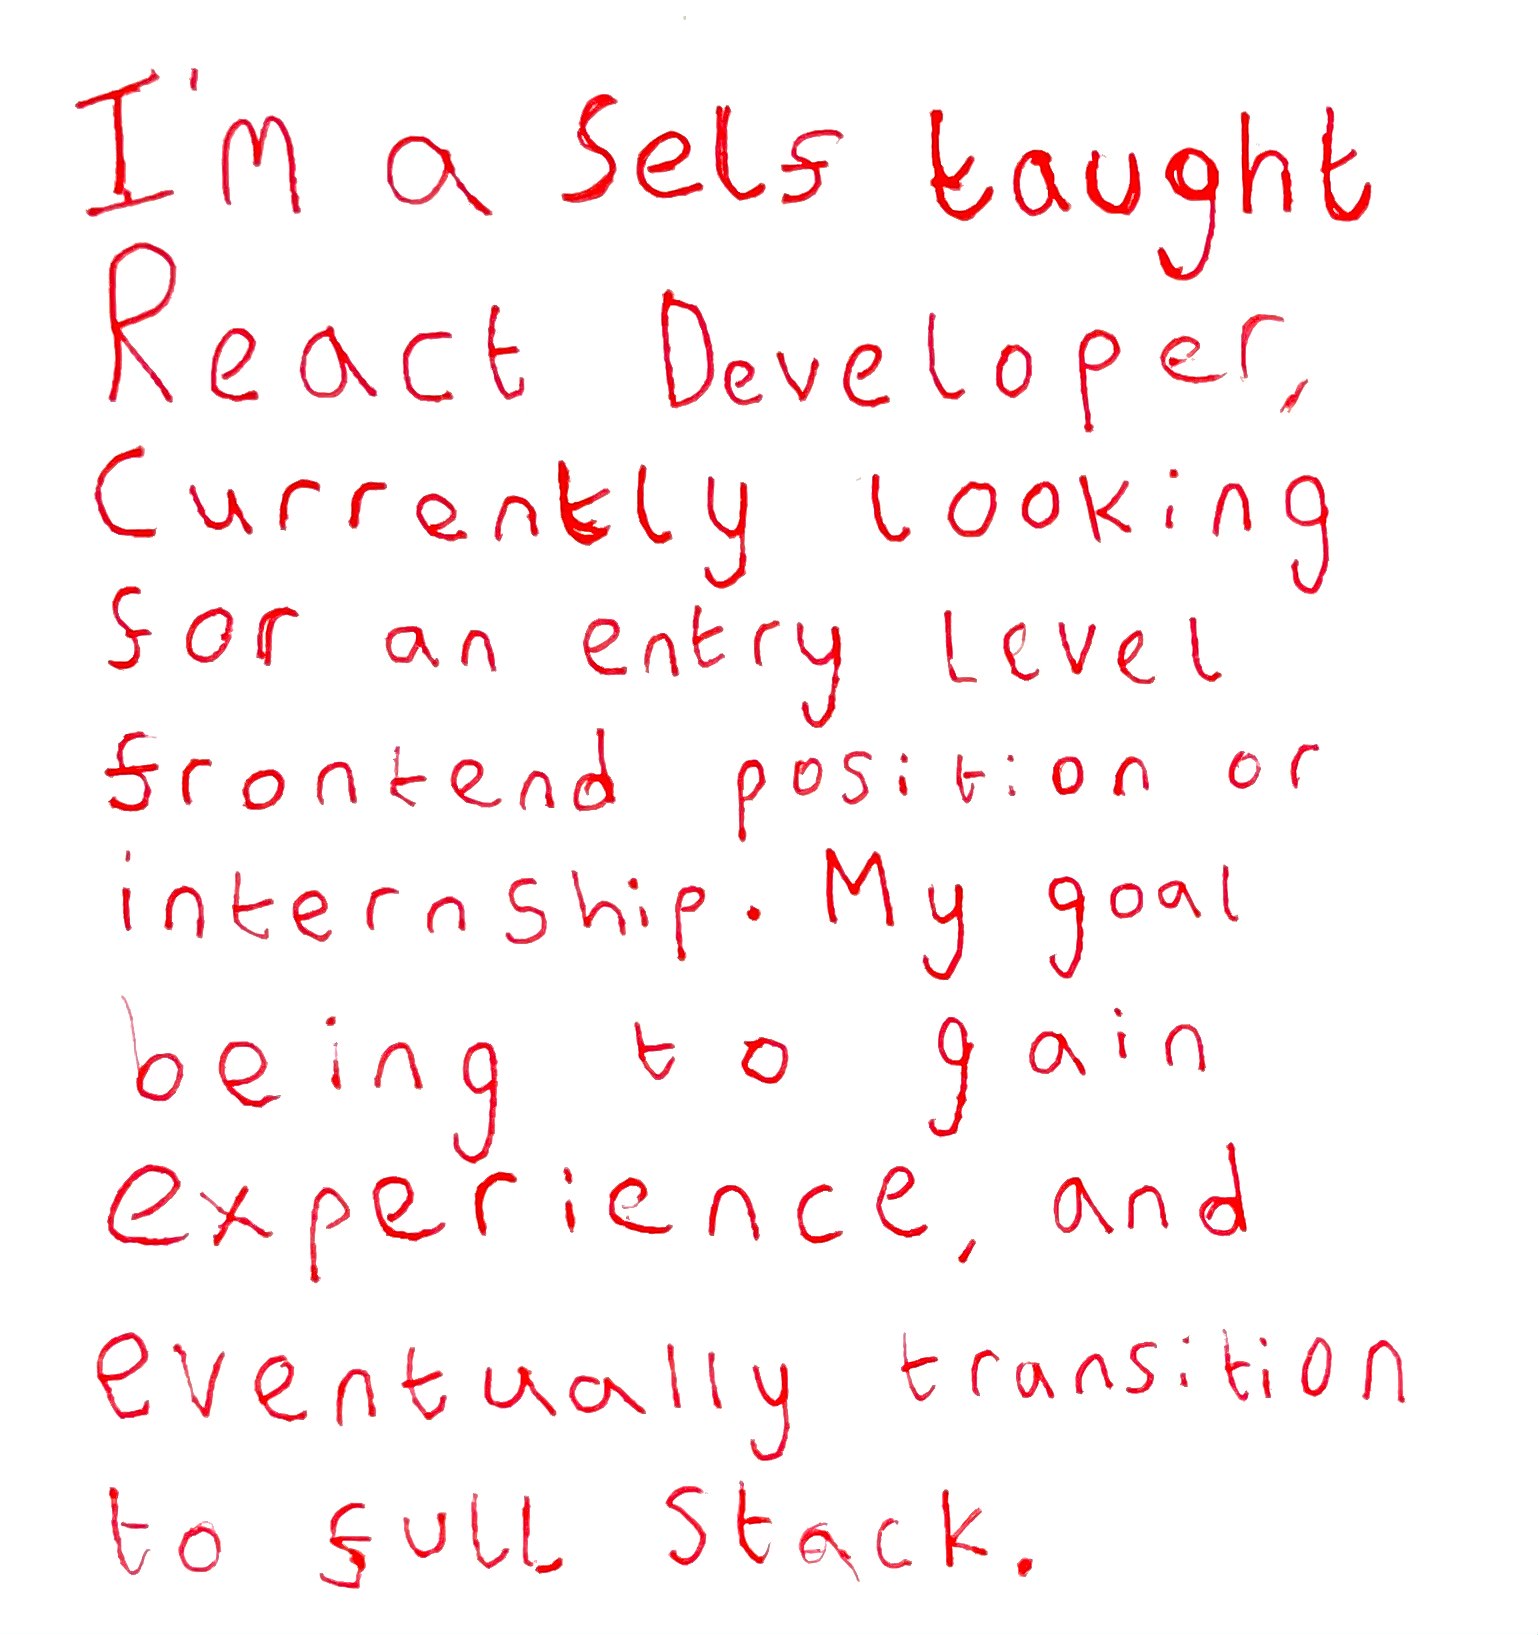 I'm a Self taught
React Developer,
Currently looking
for an entry level
frontend position or
internship. My goal
being to gain
experience, and
eventually transition
to full Stack.